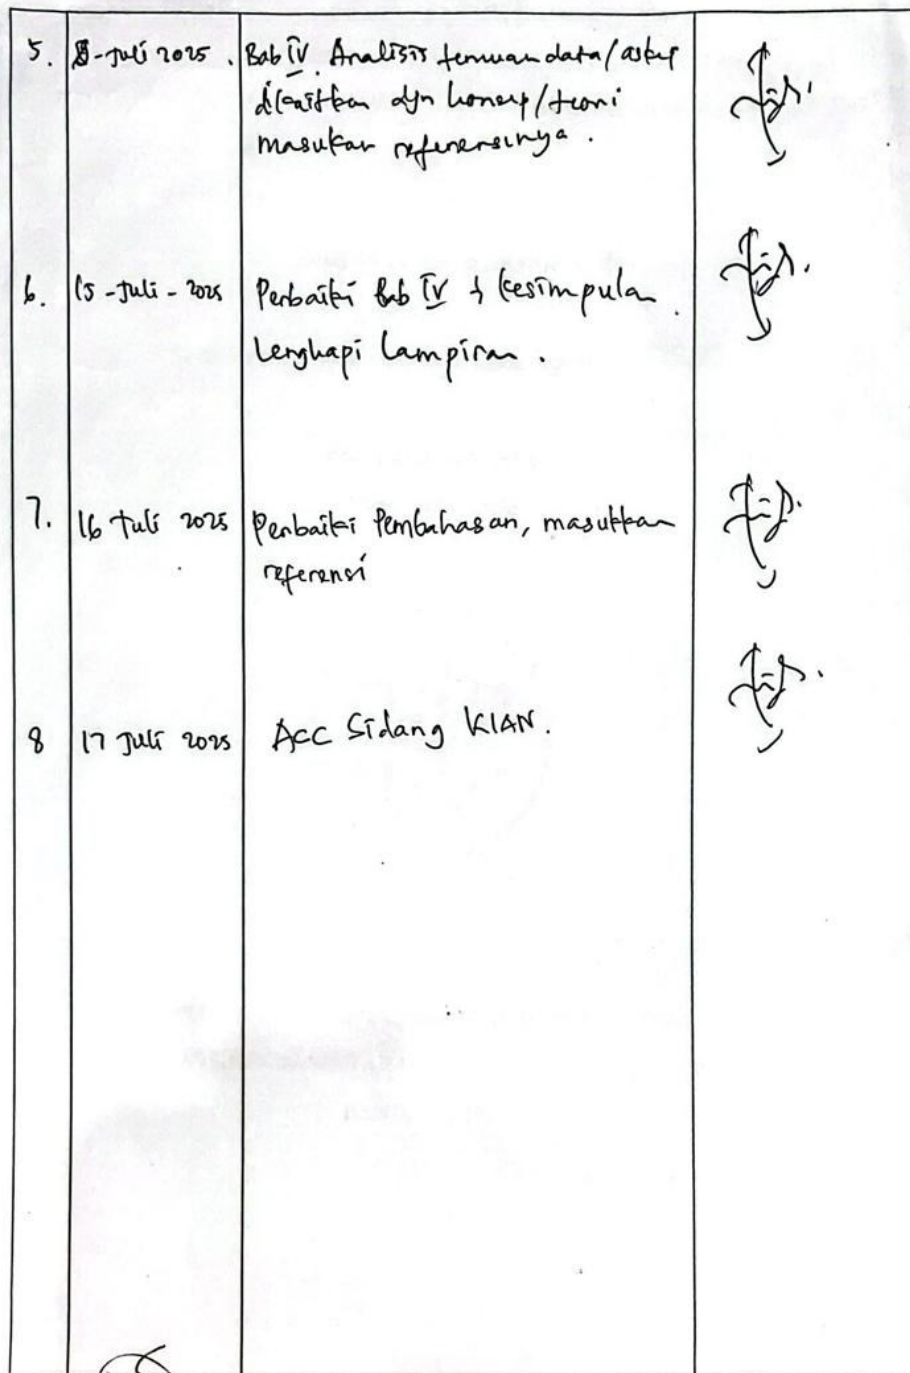 5. 8-Juli 2025. Bab IV. Analisis temuan data/askep
dikaitkan dgn konsep/teori
masukan referensinya.
6. 15-Juli-2025 Perbaiki Bab IV & kesimpulan
Lengkapi Lampiran.
7. 16 Juli 2025 Perbaiki Pembahasan, masukkan
referensi
8 17 Juli 2025 ACC Sidang KIAN.